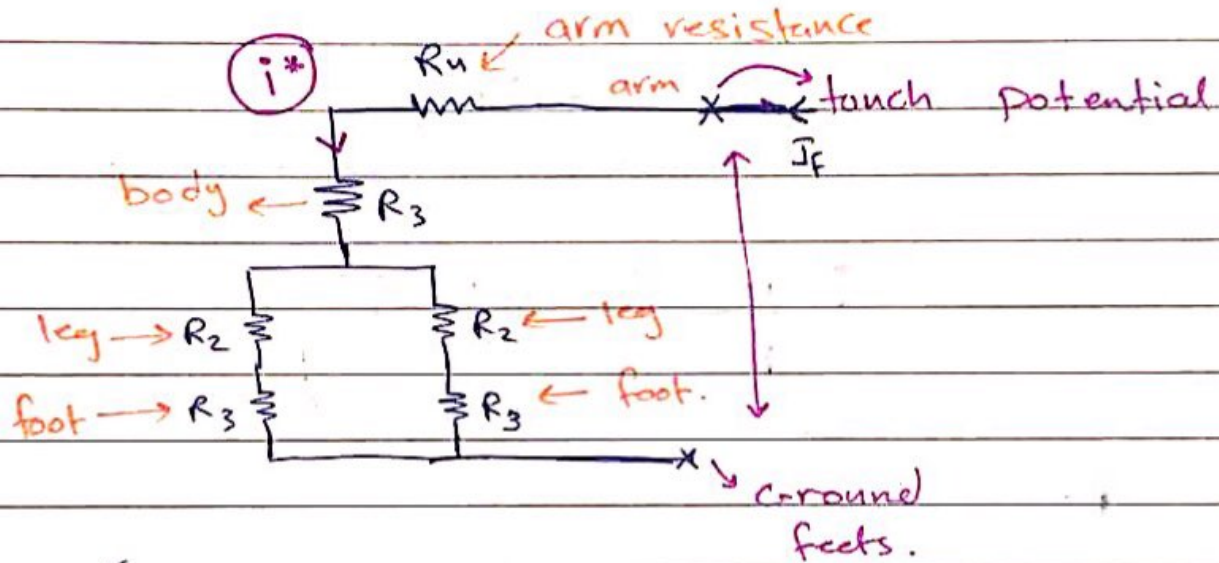 arm resistance
i* R4 arm touch potential
IF
body R3
leg R2 R2 leg
foot R3 R3 foot.
Ground
feets.